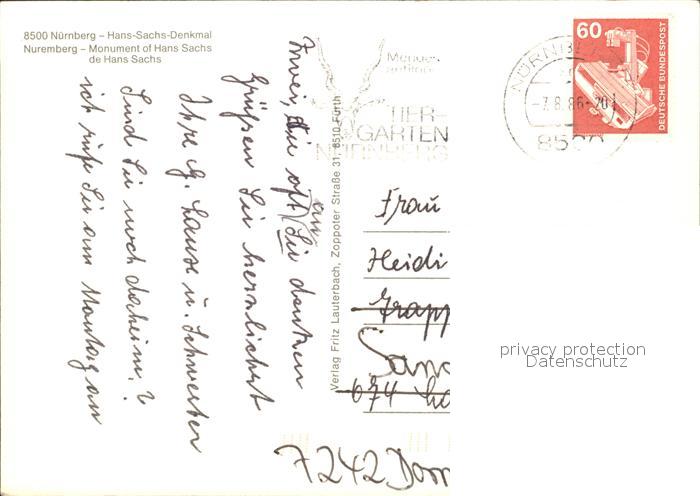 8500 Nürnberg – Hans-Sachs-Denkmal
Nuremberg – Monument of Hans Sachs
de Hans Sachs
Zwei, die oft an
Sie denken
Grüßen Sie herzlichst
Ihre G. u. Schwester
Sind Sie noch daheim?
ich rufe Sie am Montag an
Verlag Fritz Lauterbach, Zoppoter Straße 31, 8510 Fürth
TIER-
GARTEN
NÜRNBERG
NÜRNBERG
-7.8.86-20
8500
60
DEUTSCHE BUNDESPOST
Frau
Heidi
Grapp
Sand
674 La
7242 Dorn
privacy protection
Datenschutz